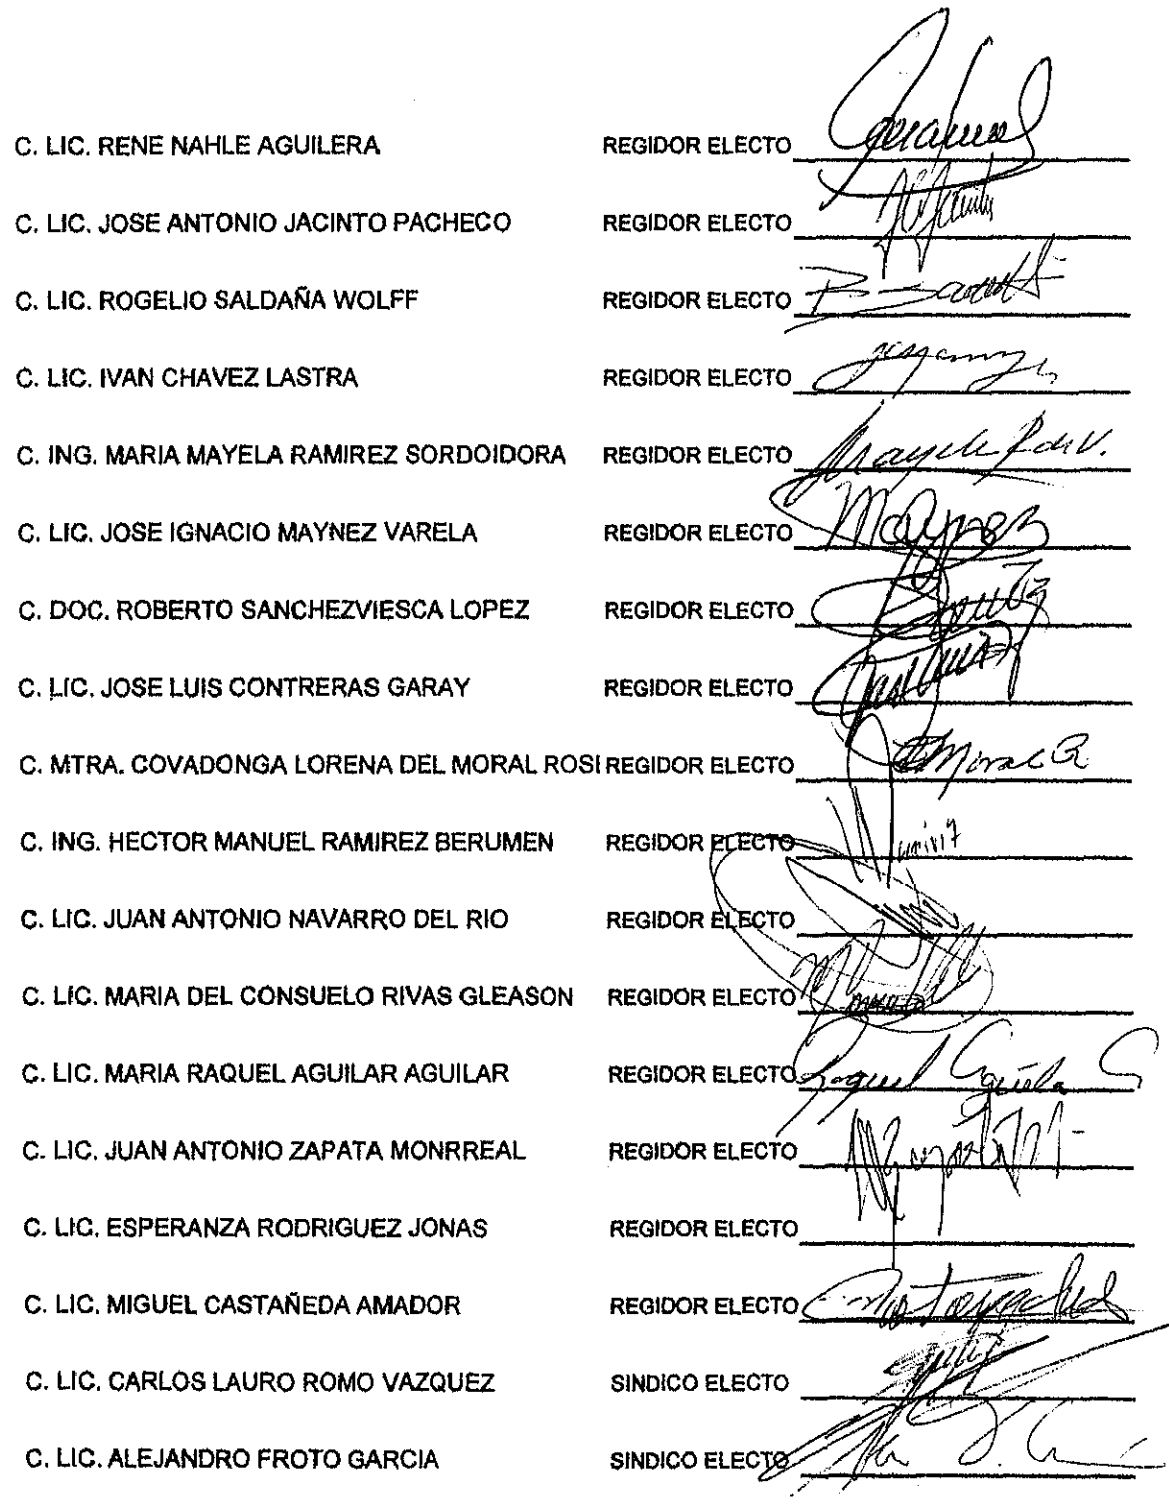 C. LIC. RENE NAHLE AGUILERA REGIDOR ELECTO
C. LIC. JOSE ANTONIO JACINTO PACHECO REGIDOR ELECTO
C. LIC. ROGELIO SALDAÑA WOLFF REGIDOR ELECTO
C. LIC. IVAN CHAVEZ LASTRA REGIDOR ELECTO
C. ING. MARIA MAYELA RAMIREZ SORDOIDORA REGIDOR ELECTO
C. LIC. JOSE IGNACIO MAYNEZ VARELA REGIDOR ELECTO Maynez
C. DOC. ROBERTO SANCHEZVIESCA LOPEZ REGIDOR ELECTO
C. LIC. JOSE LUIS CONTRERAS GARAY REGIDOR ELECTO
C. MTRA. COVADONGA LORENA DEL MORAL ROSI REGIDOR ELECTO Moral R
C. ING. HECTOR MANUEL RAMIREZ BERUMEN REGIDOR ELECTO
C. LIC. JUAN ANTONIO NAVARRO DEL RIO REGIDOR ELECTO
C. LIC. MARIA DEL CONSUELO RIVAS GLEASON REGIDOR ELECTO
C. LIC. MARIA RAQUEL AGUILAR AGUILAR REGIDOR ELECTO Raquel
C. LIC. JUAN ANTONIO ZAPATA MONRREAL REGIDOR ELECTO
C. LIC. ESPERANZA RODRIGUEZ JONAS REGIDOR ELECTO
C. LIC. MIGUEL CASTAÑEDA AMADOR REGIDOR ELECTO
C. LIC. CARLOS LAURO ROMO VAZQUEZ SINDICO ELECTO
C. LIC. ALEJANDRO FROTO GARCIA SINDICO ELECTO